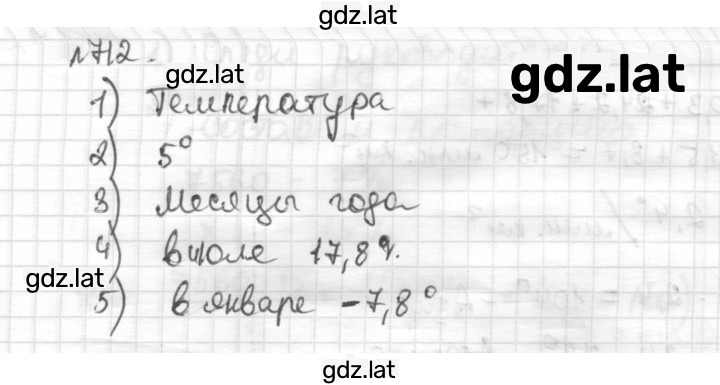 gdz.lat
№712.
gdz.lat
gdz.lat
1) Температура
2) 5°
3) Месяцы года
4) в июле 17,8°.
gdz.lat
5) в январе -7,8°
gdz.lat